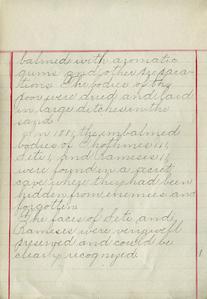 balmed with aromatic
gums and other prepara-
tions. The bodies of the
poor were dried and laid
in large ditches in the
sand.
In 1881, the embalmed
bodies of Thothmes III,
Sete I, and Rameses II,
were found in a secret
cave where they had been
hidden from enemies and
forgotten.
The faces of Sete, and
Rameses were very well
preserved and could be
clearly recognized.